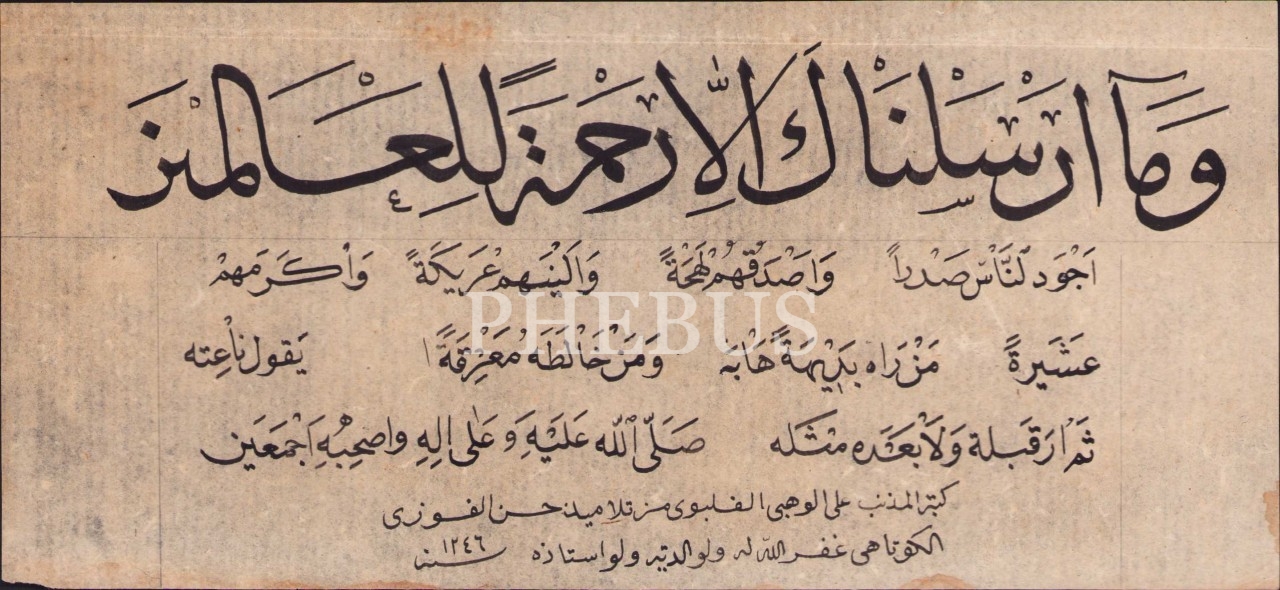 وَمَآ ارَسَلْنَاكَ اِلَّا رَحْمَةً لِلْعَالَمْنَ
اَجْوَد لنَّاسْ صَدْراً وَاَصْدَقُهُمْ لَهْجَةً وَاَلْيَنَهمْ عَرِيكَةً وَاَكْرَمَهمْ
PHEBUS
عَشَيرَةً مَنْ رَاه بَدِيهَةً هَابَه وَمَنْ خَالَطَهُ مَعْرِفَةً يَقول نَاعِته
لَمْ اَرَ قَبلة وَلَا بَعَدَه مثَله صَلَّى اللّٰه عَلَيْهِ وَعَلٰى اٰلِهِ واَصحْبِهِ اَجْمَعَين
كتبه المذنب على الوهبى من تلاميذ حسن الفوزى
الكوتاهى غفر الله له ولوالديه ولاستاذه سنه ١٢٤٦